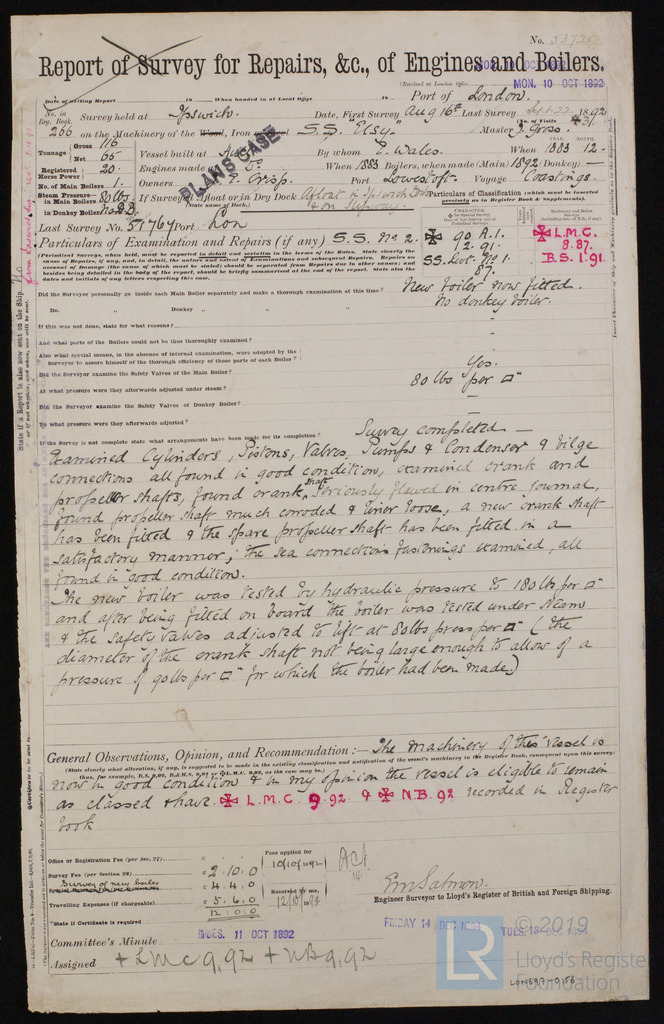 No. 53726
Report of Survey for Repairs, &c., of Engines and Boilers.
(Received at London Office
MON. 10 OCT 1892
Date of writing Report
When handed in at Local Office
Port of London.
No. in Reg. Book.
Survey held at Ipswich.
Date, First Survey Aug 16th Last Survey Sept 22 1892
266 on the Machinery of the Wood, Iron S.S. "Elsy"
Master J. Gross.
Tonnage Gross 116
Net 65
Vessel built at
By whom E. Wales.
When 1883 12.
Registered Horse Power 20
Engines made
When 1883 Boilers, when made (Main) 1892 (Donkey) —
No. of Main Boilers 1.
Owners E. Crisp.
Port Lowestoft. Voyage Coasting.
PLANS CASE
Steam Pressure in Main Boilers 80 lbs
in Donkey Boiler no D.B.
If Surveyed Afloat or in Dry Dock Afloat in Ipswich Dock
(State name of Dock.) & on Slipway.
Particulars of Classification (which must be inserted precisely as in Register Book & Supplements).
Last Survey No. 51767 Port Lon
Particulars of Examination and Repairs (if any) S.S. No. 2.
90 A.1.
12.91.
SS. Lwt. No. 1.
87.
L.M.C.
8.87.
B.S. 1.91.
Did the Surveyor personally go inside each Main Boiler separately and make a thorough examination at this time? New boiler now fitted.
Do. Donkey " " " No donkey boiler.
If this was not done, state for what reasons? —
And what parts of the Boilers could not be thoroughly examined?
Also what special means, in the absence of internal examination, were adopted by the
Surveyor to assure himself of the thorough efficiency of those parts of each Boiler? —
Did the Surveyor examine the Safety Valves of the Main Boiler? Yes.
At what pressure were they afterwards adjusted under steam? 80 lbs per □"
Did the Surveyor examine the Safety Valves of Donkey Boiler? —
To what pressure were they afterwards adjusted? —
If the Survey is not complete state what arrangements have been made for its completion? Survey completed —
Examined Cylinders, Pistons, Valves, Pumps & Condenser & bilge
connections all found in good condition, examined crank and
propeller shafts, found crank shaft seriously flawed in centre journal,
found propeller shaft much corroded & liner loose, a new crank shaft
has been fitted & the spare propeller shaft has been fitted in a
satisfactory manner; the sea connections fastenings examined, all
found in good condition.
The new boiler was tested by hydraulic pressure to 180 lbs per □"
and after being fitted on board the boiler was tested under steam
& the safety valves adjusted to lift at 80 lbs press per □" (the
diameter of the crank shaft not being large enough to allow of a
pressure of 90 lbs per □" for which the boiler had been made.)
General Observations, Opinion, and Recommendation :— The machinery of this vessel is
(State clearly what alteration, if any, is suggested to be made in the existing classification and notification of the vessel's machinery in the Register Book, consequent upon this survey;
now in good condition & in my opinion the vessel is eligible to remain
as classed & have L.M.C. 9.92 & N.B. 92 recorded in Register
book
Office or Registration Fee (per Sec. 27)
Survey Fee (per Section 28) 2.10.0
Survey of new boiler 4.4.0
Travelling Expenses (if chargeable) 5.6.0
12.0.0
Fees applied for
10/10/1892
Received by me,
12/10/92
Act
E. M. Salmon.
Engineer Surveyor to Lloyd's Register of British and Foreign Shipping.
*State if Certificate is required
Committee's Minute TUES. 11 OCT 1892
FRIDAY 14 DEC
TUES. 18 DEC
Assigned + LMC 9,92 + NB 9,92
© 2019
LR
Lloyd's Register
Foundation
LON697-0156